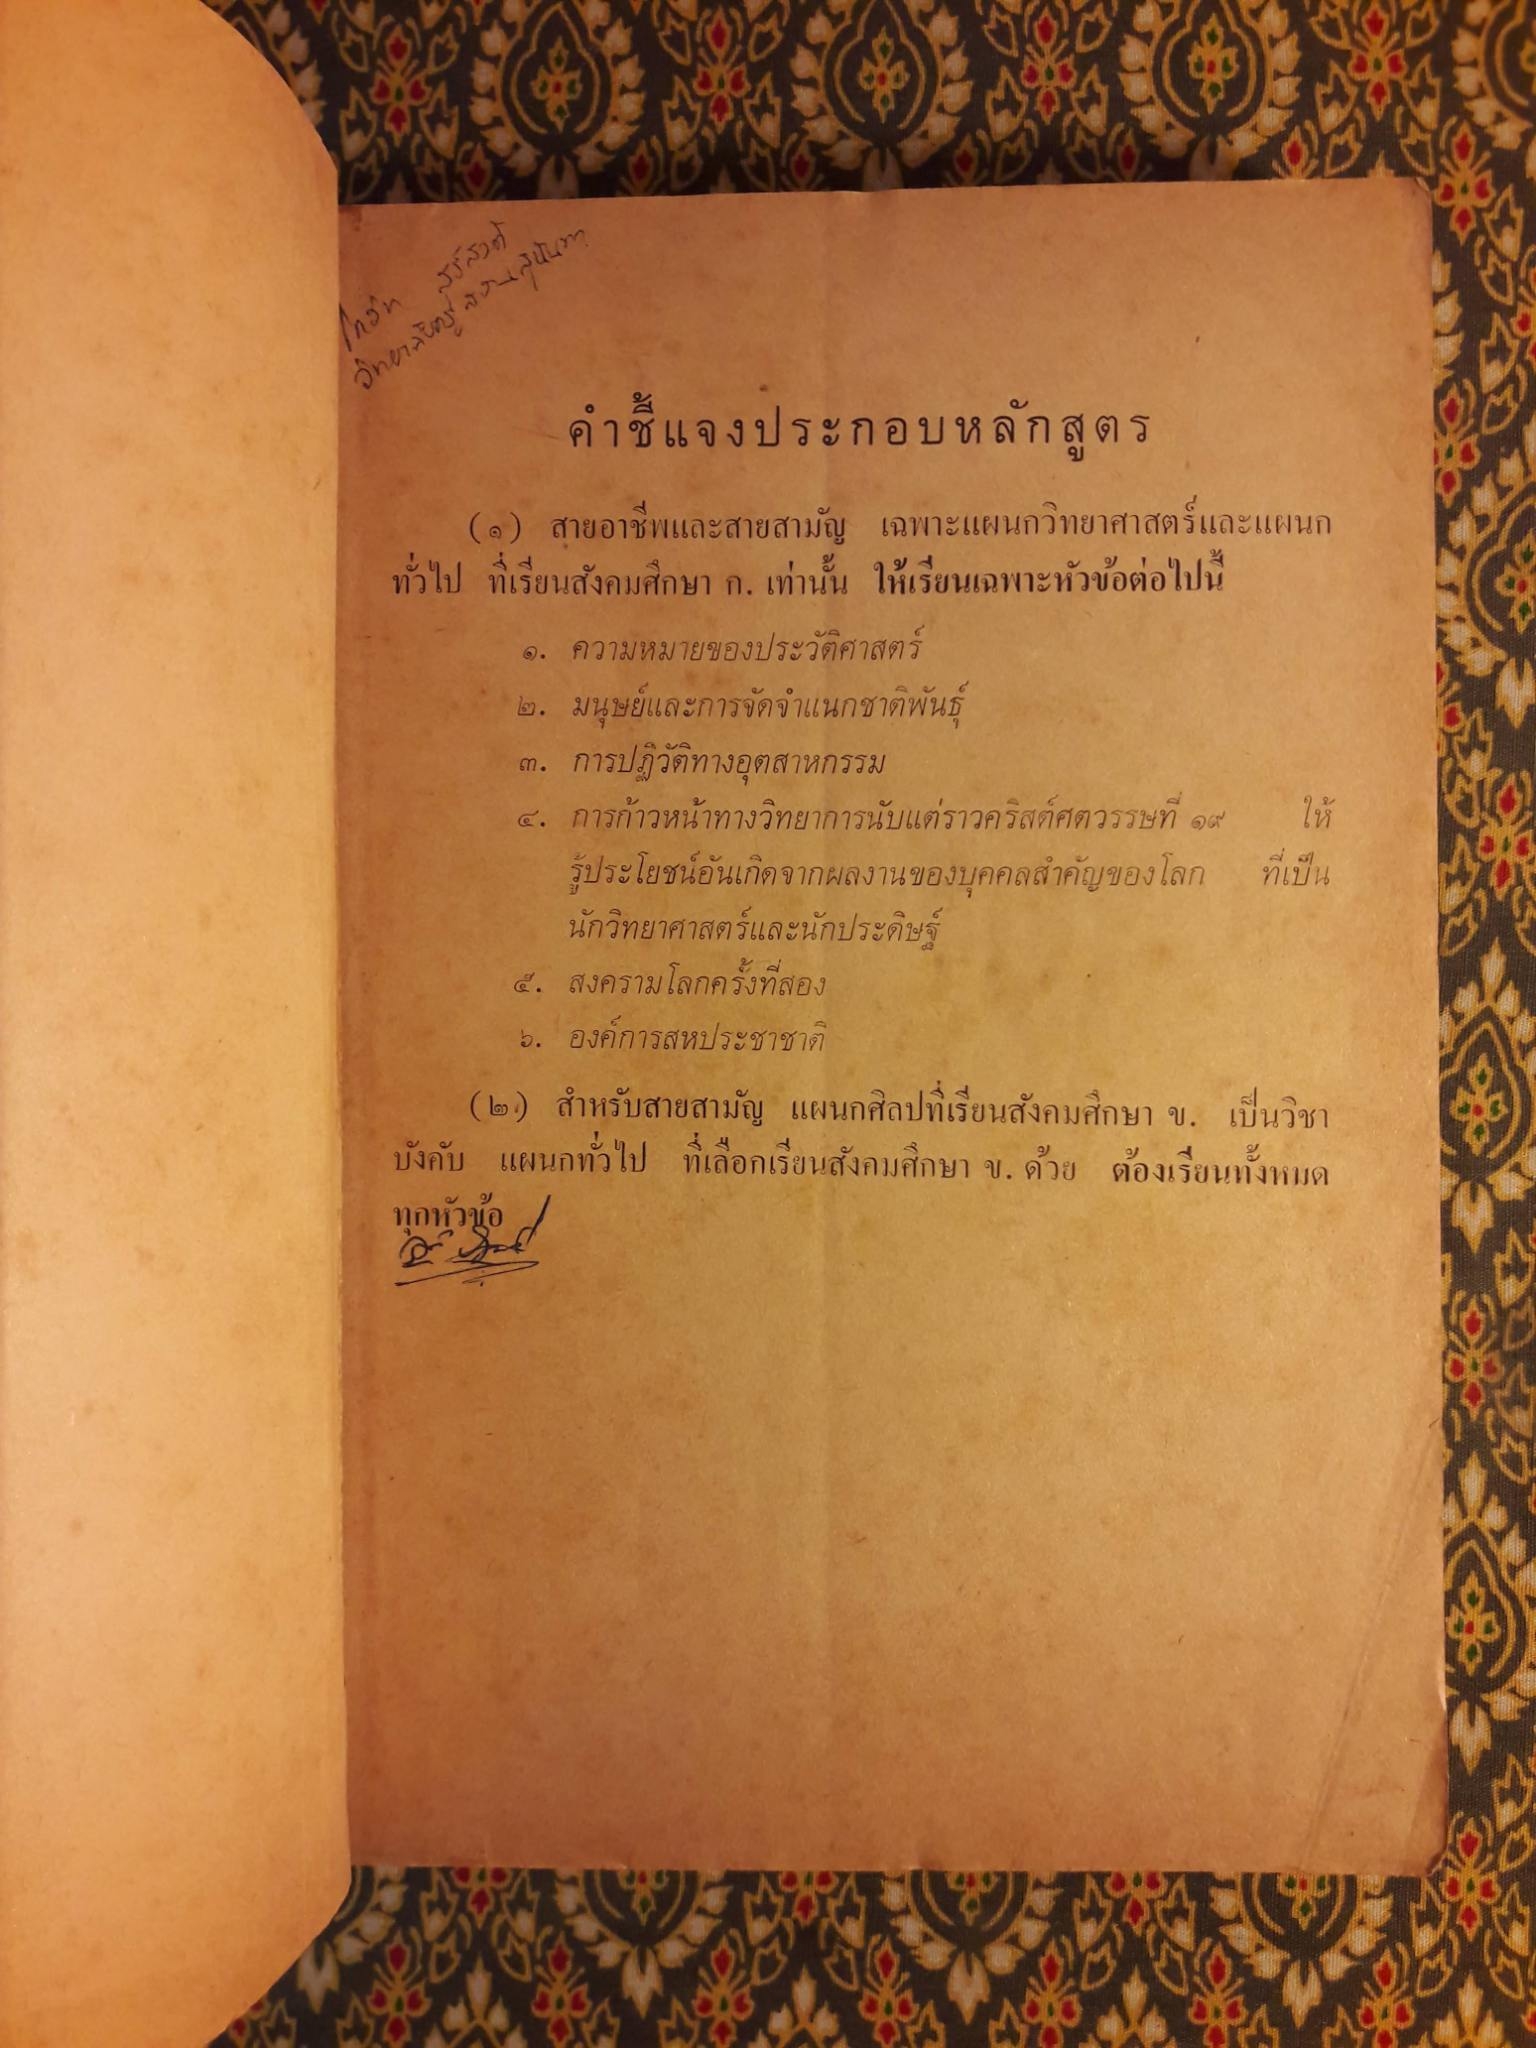 คำชี้แจงประกอบหลักสูตร
(๑) สายอาชีพและสายสามัญ เฉพาะแผนกวิทยาศาสตร์และแผนก
ทั่วไป ที่เรียนสังคมศึกษา ก. เท่านั้น ให้เรียนเฉพาะหัวข้อต่อไปนี้
๑. ความหมายของประวัติศาสตร์
๒. มนุษย์และการจัดจำแนกชาติพันธุ์
๓. การปฏิวัติทางอุตสาหกรรม
๔. การก้าวหน้าทางวิทยาการนับแต่ราวคริสต์ศตวรรษที่ ๑๙ ให้
รู้ประโยชน์อันเกิดจากผลงานของบุคคลสำคัญของโลก ที่เป็น
นักวิทยาศาสตร์และนักประดิษฐ์
๕. สงครามโลกครั้งที่สอง
๖. องค์การสหประชาชาติ
(๒) สำหรับสายสามัญ แผนกศิลปที่เรียนสังคมศึกษา ข. เป็นวิชา
บังคับ แผนกทั่วไป ที่เลือกเรียนสังคมศึกษา ข. ด้วย ต้องเรียนทั้งหมด
ทุกหัวข้อ